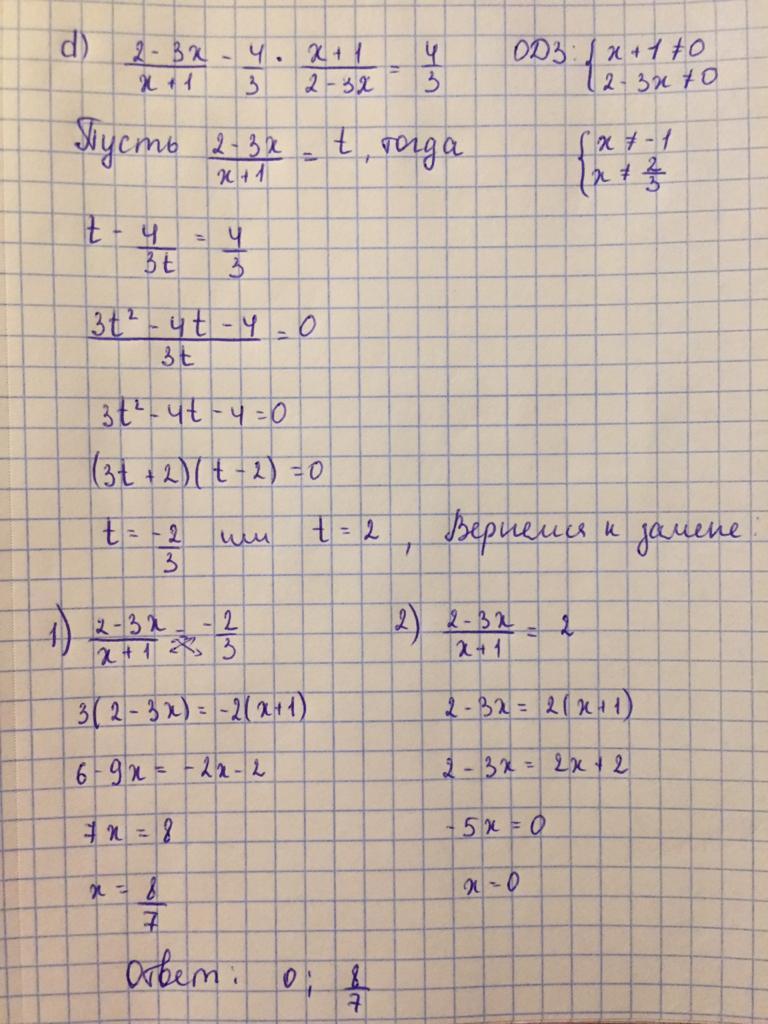 d) (2-3x)/(x+1) - 4/3 · (x+1)/(2-3x) = 4/3 ОДЗ: { x+1≠0
2-3x≠0
Пусть (2-3x)/(x+1) = t, тогда { x≠-1
x≠2/3
t - 4/(3t) = 4/3
(3t²-4t-4)/(3t) = 0
3t²-4t-4=0
(3t+2)(t-2)=0
t = -2/3 или t = 2, Вернемся к замене:
1) (2-3x)/(x+1) = -2/3 2) (2-3x)/(x+1) = 2
3(2-3x) = -2(x+1) 2-3x = 2(x+1)
6-9x = -2x-2 2-3x = 2x+2
7x = 8 -5x = 0
x = 8/7 x=0
Ответ: 0; 8/7